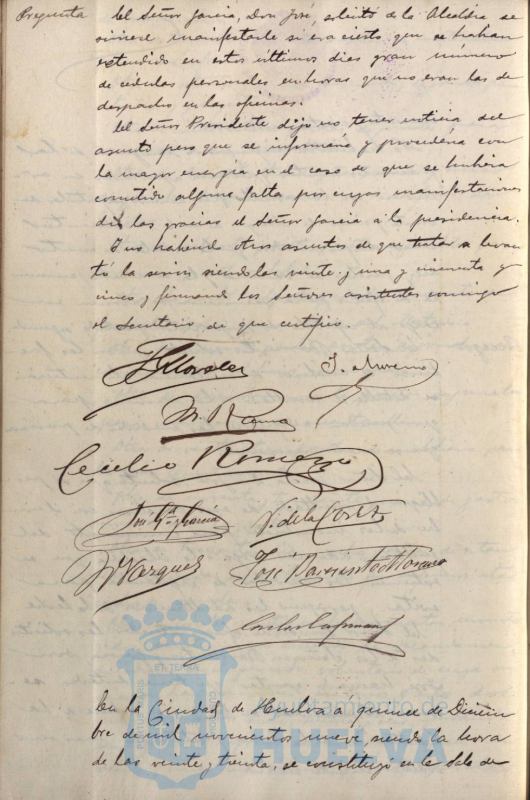 Pregunta
El Señor Garcia, Don José, solicitó de la Alcaldia se
sirviere manifestarle si era cierto que se habian
extendido en estos últimos dias gran número
de cédulas personales en horas que no eran las de
despacho en las oficinas.
El Señor Presidente dijo no tener noticia del
asunto pero que se informaria y procederia con
la mayor energia en el caso de que se hubiera
cometido alguna falta por cuyas manifestaciones
dió las gracias el Señor Garcia á la presidencia.
Y no habiendo otros asuntos de que tratar se levan
tó la sesion siendo las veinte y una y cincuenta y
cinco y firmando los Señores asistentes conmigo
el Secretario de que certifico.
J. Moreno
Cecilio Romero
José Gª y Garcia
V. de la Corte
M Vazquez
José
En la Ciudad de Huelva á quince de Diciem
bre de mil novecientos nueve, siendo la hora
de las veinte y treinta, se constituyó en la Sala de
ET TERRA
Ayuntamiento de
HUELVA